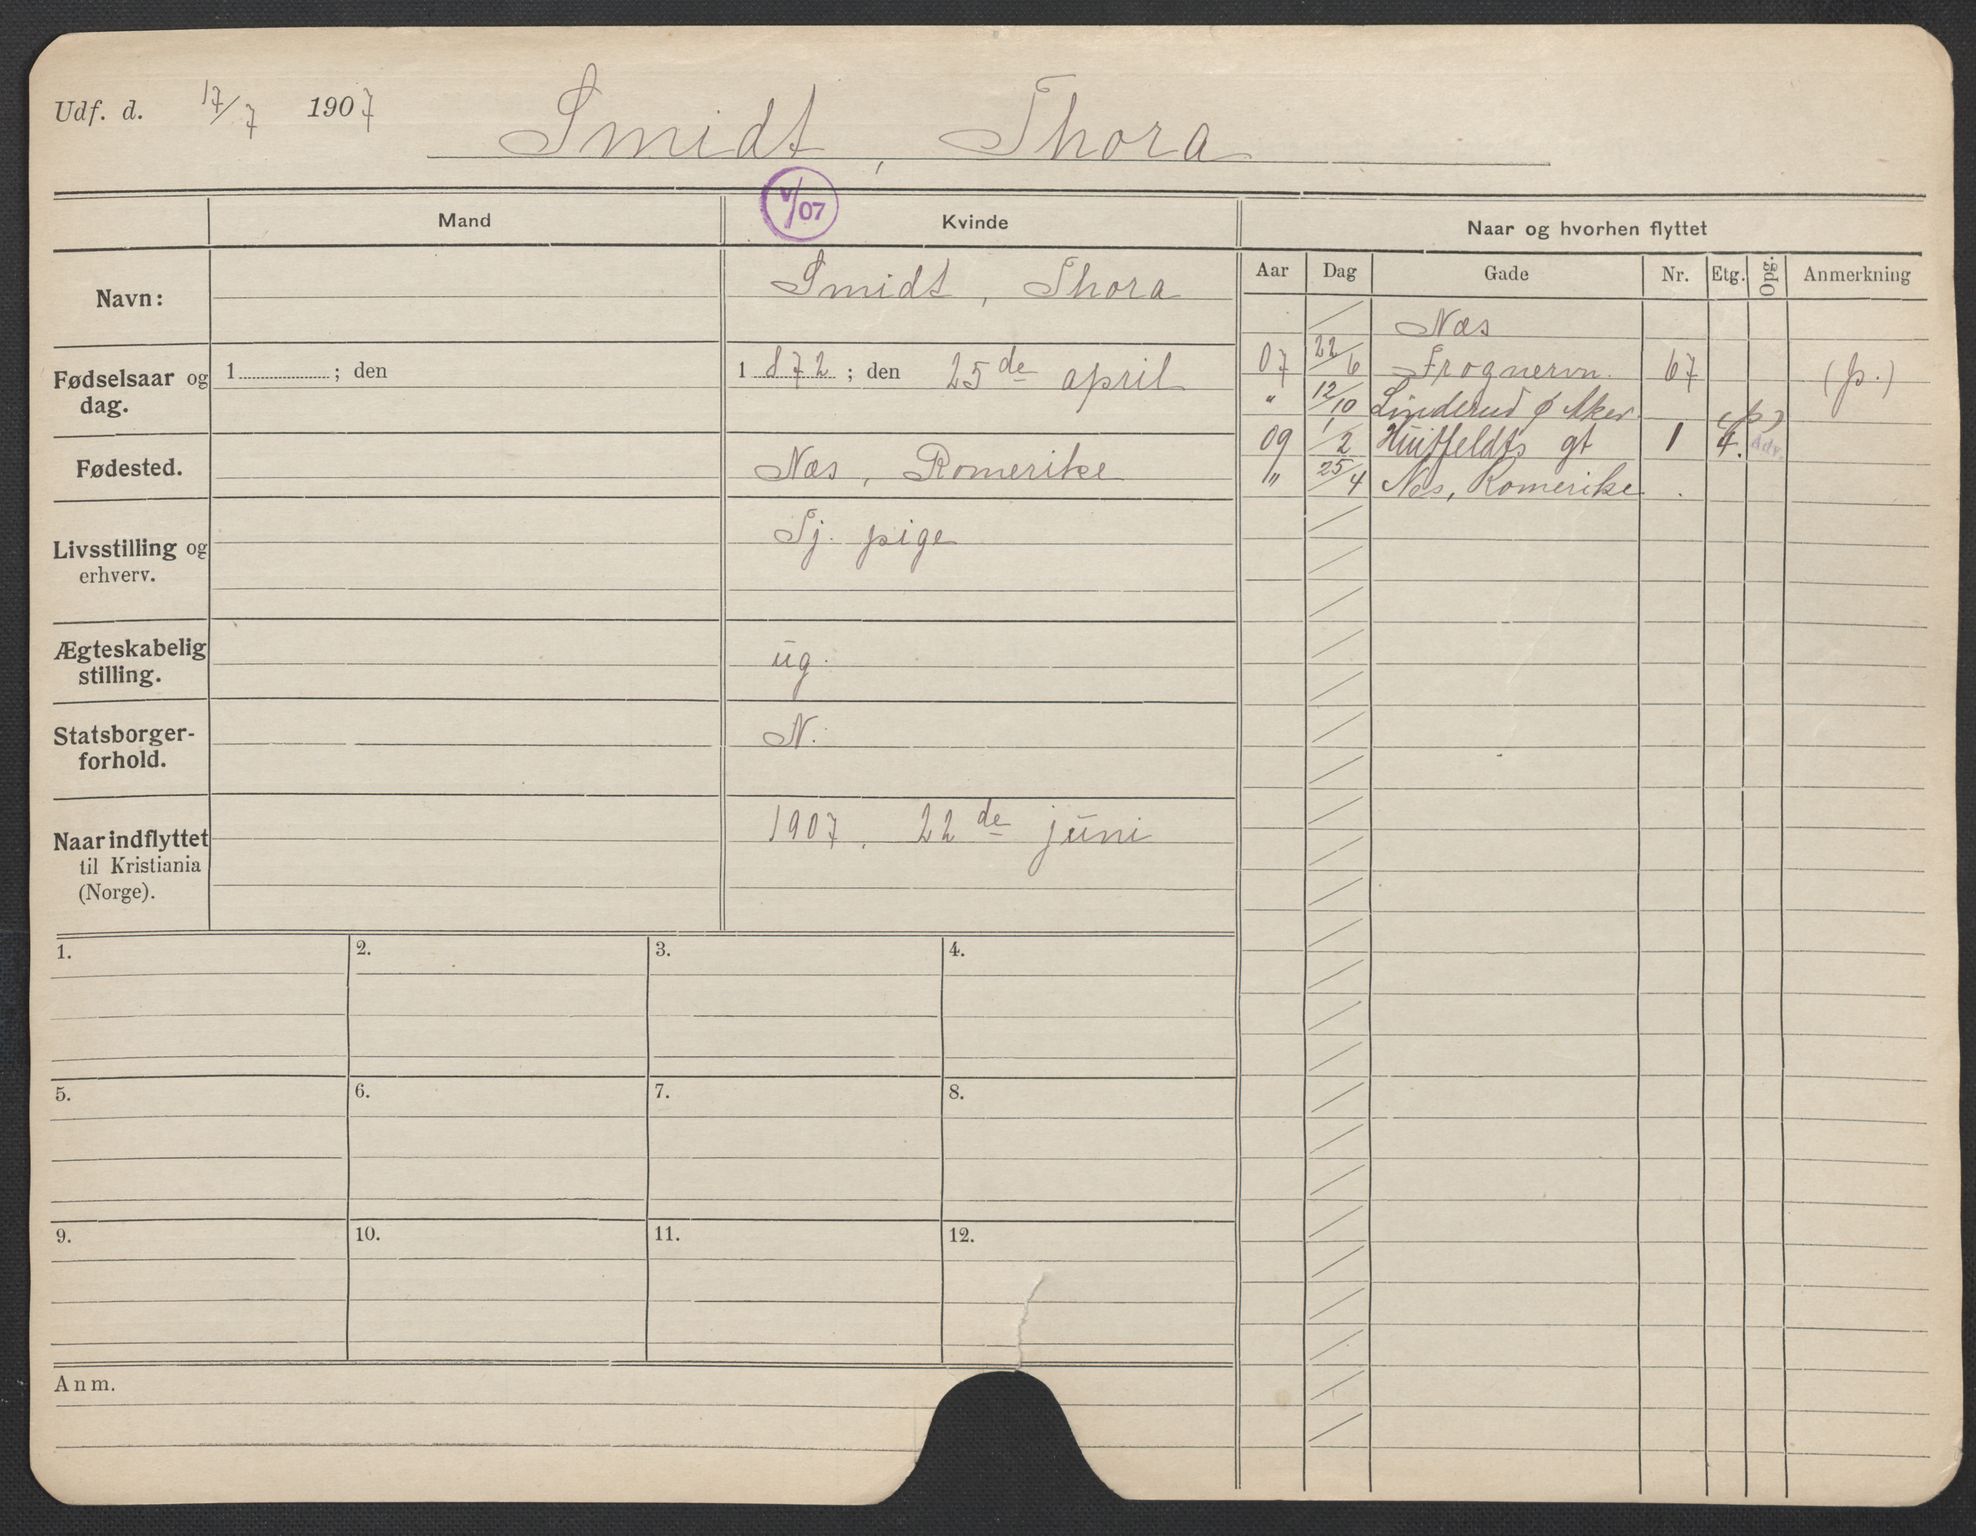 Udf. d. 17/7 1907 Smidt, Thora
V/07
Mand Kvinde Naar og hvorhen flyttet
Aar Dag Gade Nr. Etg. Opg. Anmerkning
Navn: Smidt, Thora
Fødselsaar og dag. 1 ; den 1 872 ; den 25de april
Fødested. Næs, Romerike
Livsstilling og erhverv. Tj. pige
Ægteskabelig stilling. ug.
Statsborgerforhold. N.
Naar indflyttet til Kristiania (Norge). 1907, 22de juni
Næs
07 22/6 Frognervn. 67 (p.)
" 12/10 Linderud ø Aker
09 1/2 Huitfeldts gt 1 4. (p) Adv.
" 25/4 Næs, Romerike
1. 2. 3. 4.
5. 6. 7. 8.
9. 10. 11. 12.
Anm.